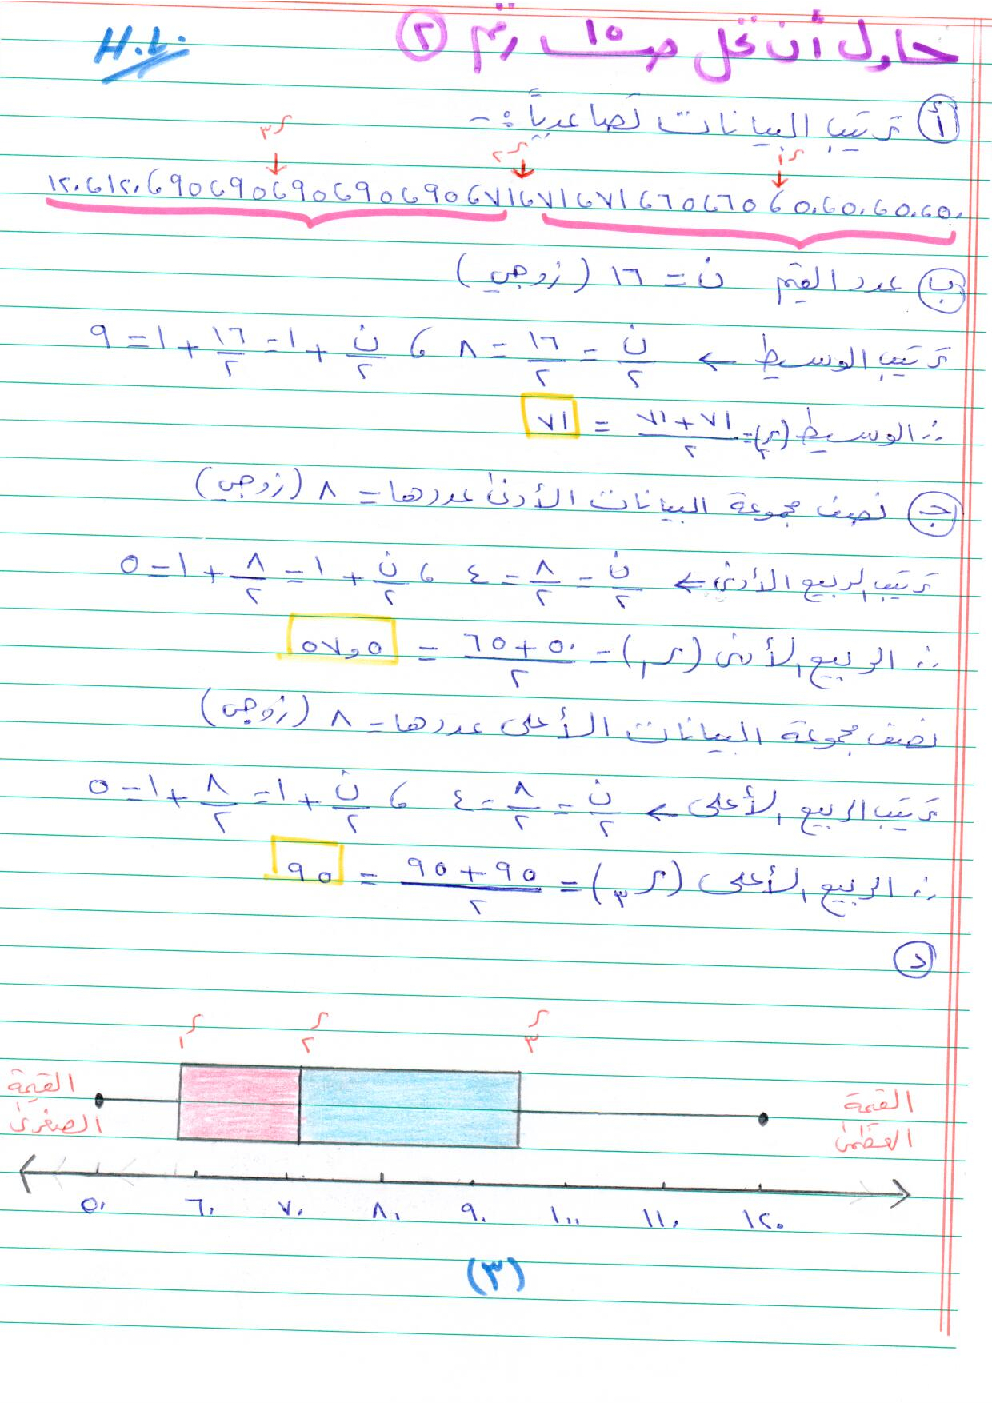 حاول أن تحل ص ١٥ رقم (٢)
H.L.
(أ) ترتيب البيانات تصاعدياً :-
ر١ ر٢ ر٣
٥٠، ٥٠، ٥٠، ٥٠، ٦٥، ٦٥، ٧١، ٧١، ٧١، ٩٥، ٩٥، ٩٥، ٩٥، ٩٥، ١٢٠، ١٢٠
(ب) عدد القيم ن = ١٦ (زوجي)
ترتيب الوسيط ← ن/٢ = ١٦/٢ = ٨ ، ن/٢ + ١ = ١٦/٢ + ١ = ٩
∴ الوسيط (ر٢) = ٧١+٧١/٢ = ٧١
(جـ) نصف مجموعة البيانات الأدنى عددها = ٨ (زوجي)
ترتيب الربيع الأدنى ← ن/٢ = ٨/٢ = ٤ ، ن/٢ + ١ = ٨/٢ + ١ = ٥
∴ الربيع الأدنى (ر١) = ٥٠+٦٥/٢ = ٥٧,٥
نصف مجموعة البيانات الأعلى عددها = ٨ (زوجي)
ترتيب الربيع الأعلى ← ن/٢ = ٨/٢ = ٤ ، ن/٢ + ١ = ٨/٢ + ١ = ٥
∴ الربيع الأعلى (ر٣) = ٩٥+٩٥/٢ = ٩٥
(د)
ر١ ر٢ ر٣
القيمة الصغرى
القيمة العظمى
٥٠ ٦٠ ٧٠ ٨٠ ٩٠ ١٠٠ ١١٠ ١٢٠
(٣)